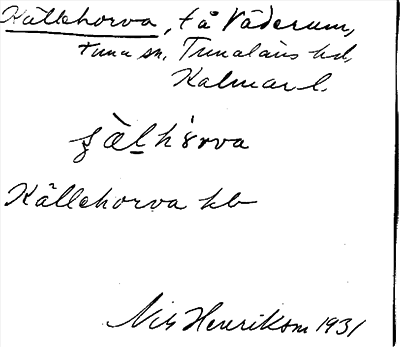 Källehorva, t å Väderum,
Tuna sn, Tunaläns hd,
Kalmar l.
ʂàl̠hørva
Källehorva kb
Nils Henrikson 1931